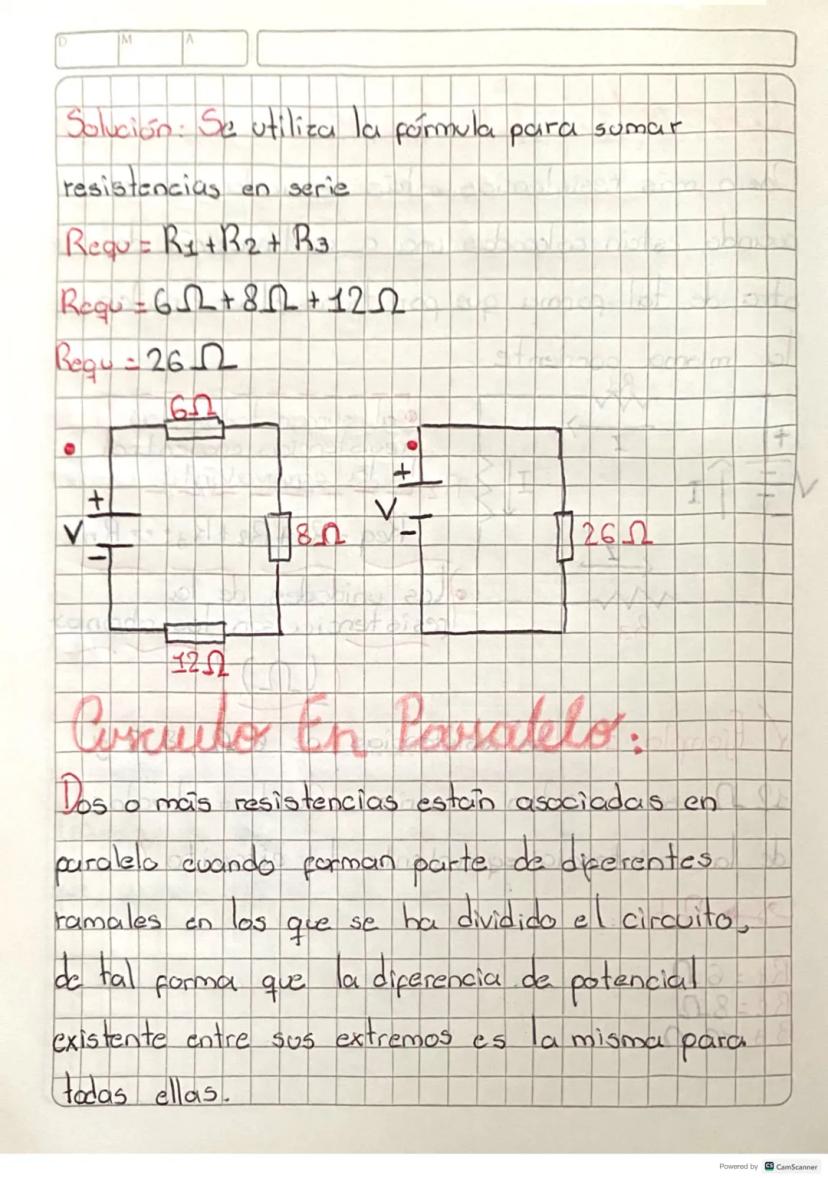 D M A
Solución: Se utiliza la fórmula para sumar
resistencias en serie
Requ = R1 + R2 + R3
Requ = 6Ω + 8Ω + 12Ω
Requ = 26 Ω
6Ω
+
V
-
8Ω
12Ω
+
V
-
26 Ω
Circuito En Paralelo:
Dos o más resistencias están asociadas en
paralelo cuando forman parte de diferentes
ramales en los que se ha dividido el circuito,
de tal forma que la diferencia de potencial
existente entre sus extremos es la misma para
todas ellas.
Powered by CS CamScanner